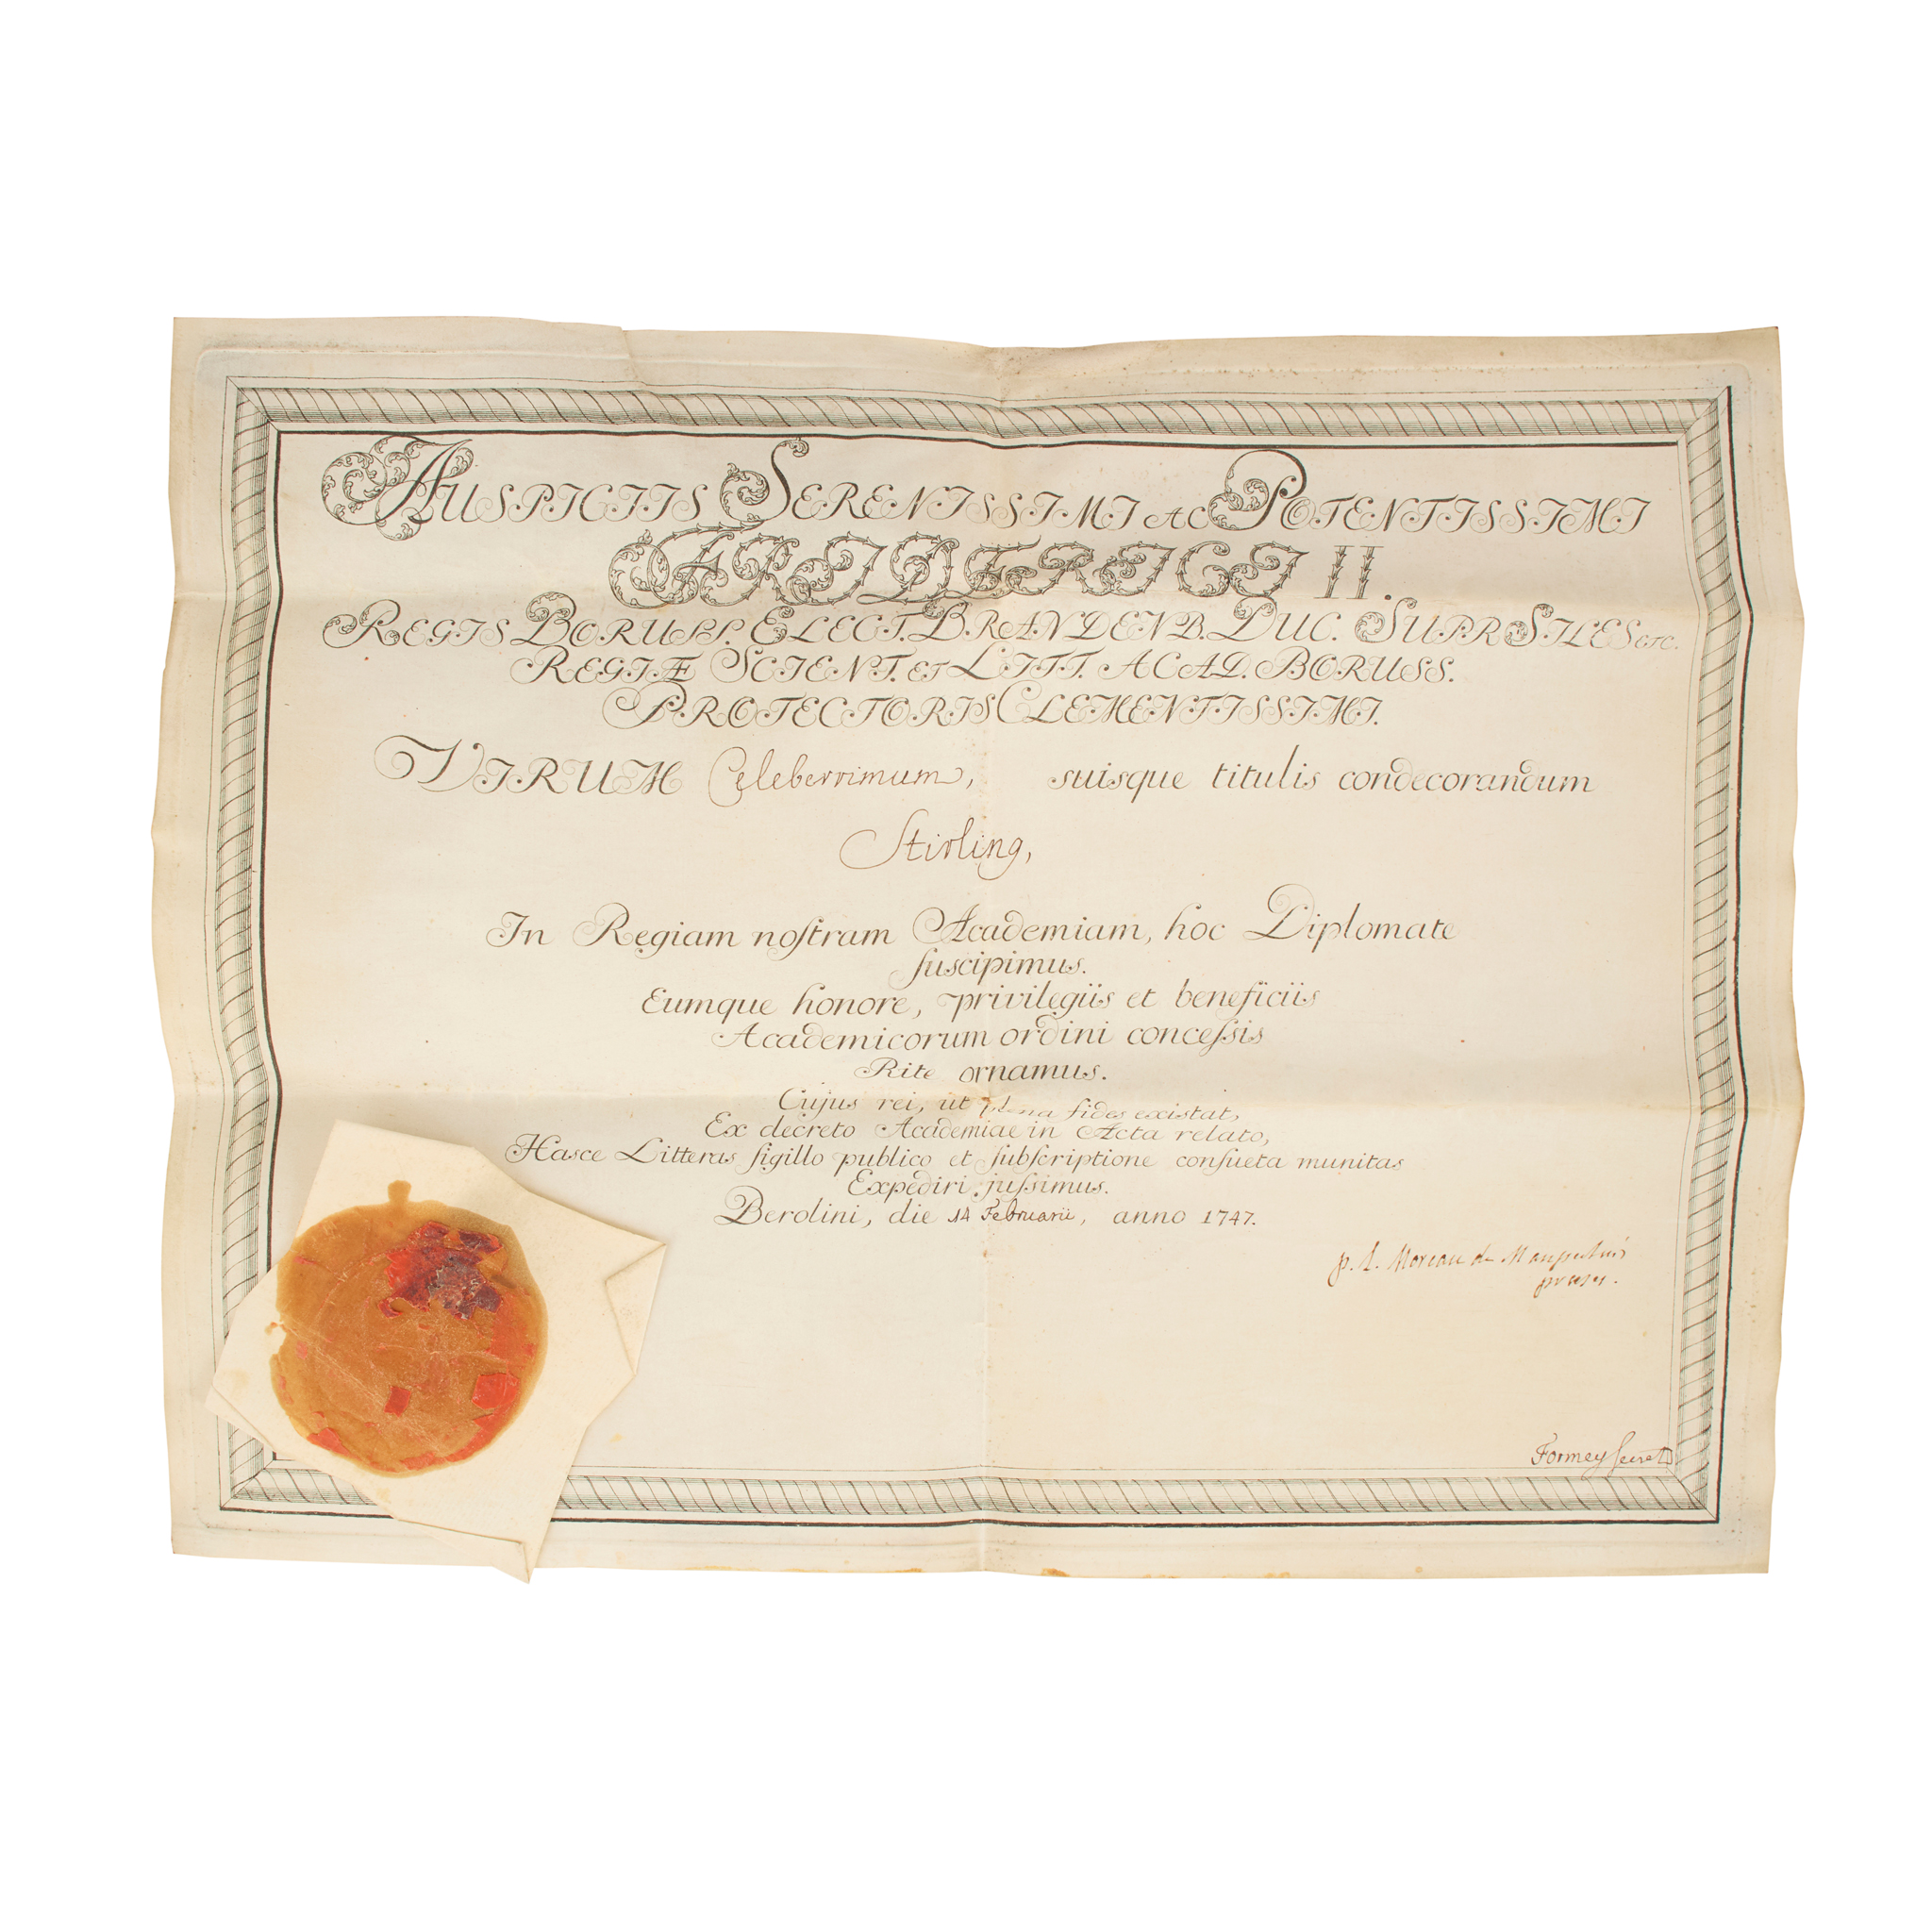 AUSPICIIS SERENISSIMI AC POTENTISSIMI
FRIDERICI II.
REGIS BORUSS. ELECT. BRANDENB. DUC. SUPR SILES etc.
REGIÆ SCIENT. ET LITT. ACAD. BORUSS.
PROTECTORIS CLEMENTISSIMI.
VIRUM Celeberrimum, suisque titulis condecorandum
Stirling,
In Regiam noſtram Academiam, hoc Diplomate
ſuscipimus.
Eumque honore, privilegiis et beneficiis
Academicorum ordini conceſsis
Rite ornamus.
Cujus rei, ut plena fides existat,
Ex decreto Academiae in Acta relato,
Hasce Litteras ſigillo publico et ſubſcriptione conſueta munitas
Expediri juſsimus.
Berolini, die 14 Februarii, anno 1747.
p. l. Moreau de Maupertuis
preses.
Formey Secret.